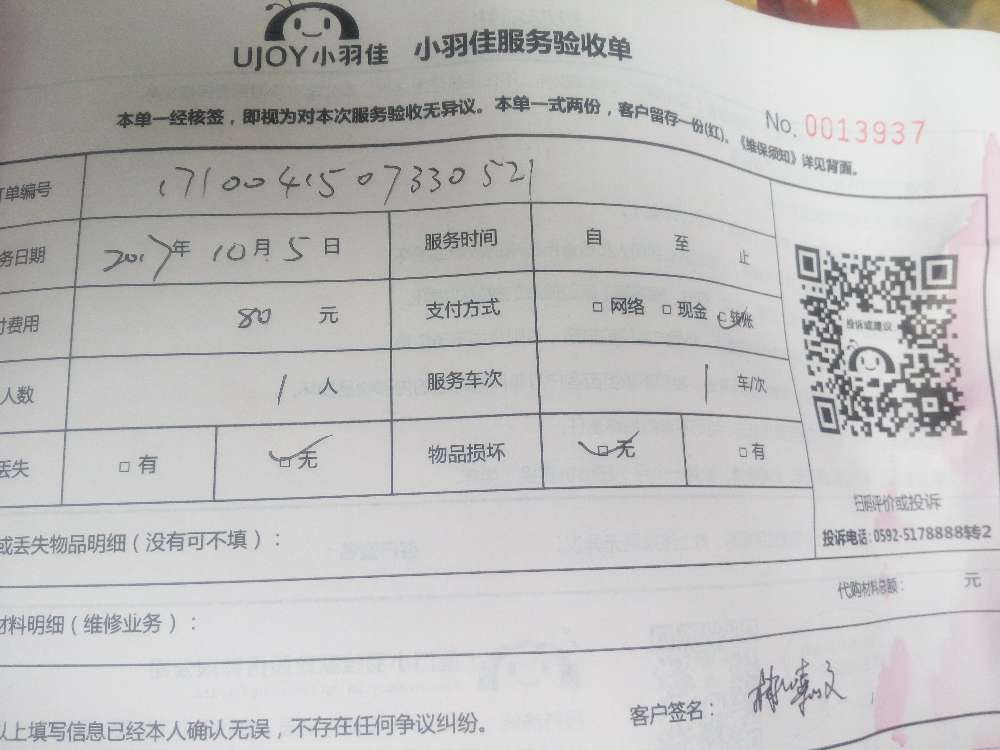 UJOY小羽佳 小羽佳服务验收单
本单一经核签，即视为对本次服务验收无异议。本单一式两份，客户留存一份(红)、《维保须知》详见背面。
No. 0013937
订单编号 171004150733052
务日期 2017年 10月 5日 服务时间 自 至 止
付费用 80 元 支付方式 □ 网络 □ 现金 □ 转账
人数 1 人 服务车次 1 车/次
丢失 □ 有 □ 无 物品损坏 □ 无 □ 有
投诉或建议
扫码评价或投诉
投诉电话: 0592-5178888转2
或丢失物品明细（没有可不填）：
代购材料总额： 元
材料明细（维修业务）：
以上填写信息已经本人确认无误，不存在任何争议纠纷。 客户签名：